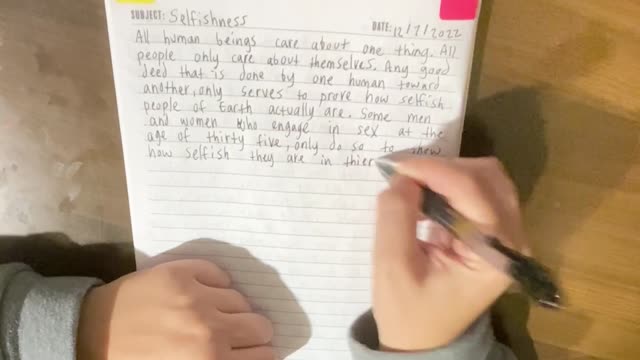 SUBJECT: Selfishness DATE: 12/7/2022
All human beings care about one thing. All
people only care about themselves. Any good
deed that is done by one human toward
another, only serves to prove how selfish
people of Earth actually are. Some men
and women who engage in sex at the
age of thirty five, only do so to show
how selfish they are in thier